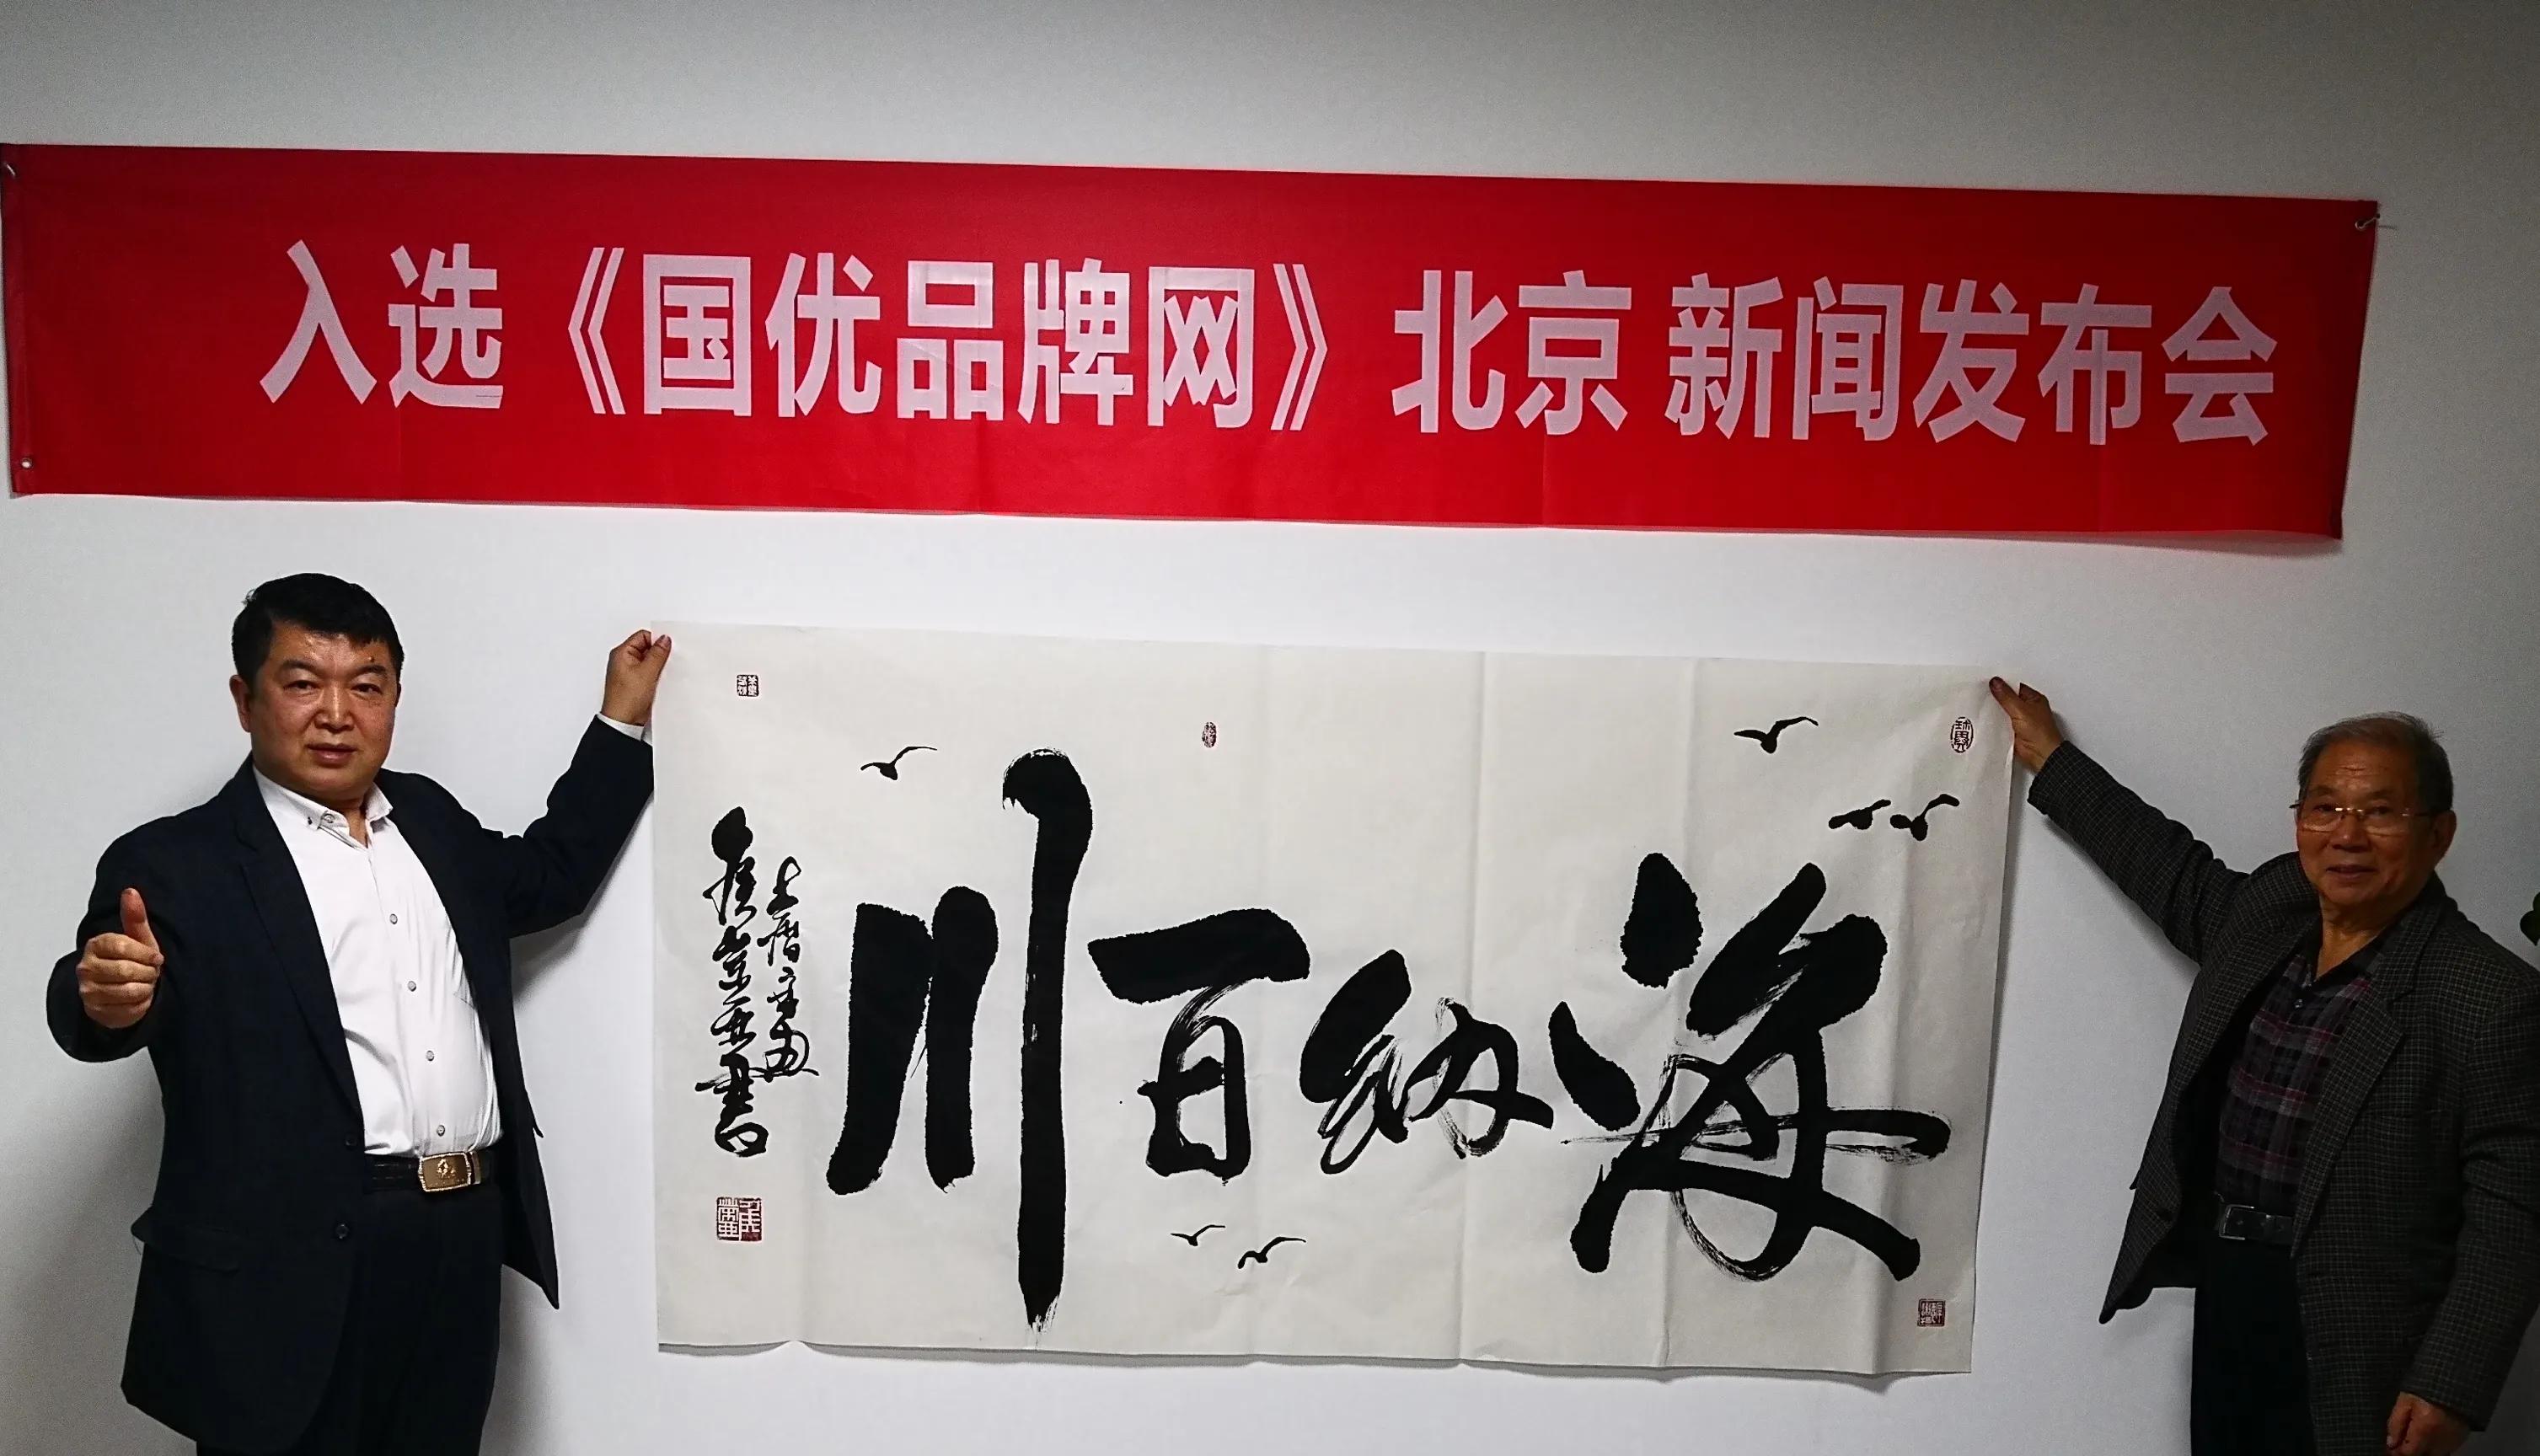 入选《国优品牌网》北京 新闻发布会
海纳百川